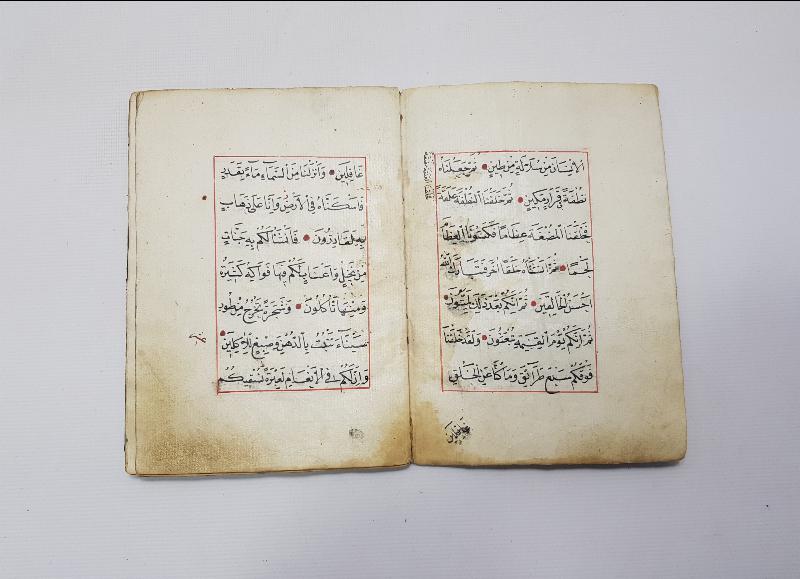 الْاِنْسَانَ مِنْ سُلَالَةٍ مِنْ طِينٍ ثُمَّ جَعَلْنَاهُ
نُطْفَةً فِي قَرَارٍ مَكِينٍ ثُمَّ خَلَقْنَا النُّطْفَةَ عَلَقَةً
فَخَلَقْنَا الْمُضْغَةَ عِظَامًا فَكَسَوْنَا الْعِظَامَ
لَحْمًا ثُمَّ اَنْشَأْنَاهُ خَلْقًا اٰخَرَ فَتَبَارَكَ اللّٰهُ
اَحْسَنُ الْخَالِقِينَ ثُمَّ اِنَّكُمْ بَعْدَ ذٰلِكَ لَمَيِّتُونَ
ثُمَّ اِنَّكُمْ يَوْمَ الْقِيٰمَةِ تُبْعَثُونَ وَلَقَدْ خَلَقْنَا
فَوْقَكُمْ سَبْعَ طَرَائِقَ وَمَا كُنَّا عَنِ الْخَلْقِ
غافلين
غَافِلِينَ وَاَنْزَلْنَا مِنَ السَّمَاءِ مَاءً بِقَدَرٍ
فَاَسْكَنَّاهُ فِي الْاَرْضِ وَاِنَّا عَلٰى ذَهَابٍ
بِهِ لَقَادِرُونَ فَاَنْشَأْنَا لَكُمْ بِهِ جَنَّاتٍ
مِنْ نَخِيلٍ وَاَعْنَابٍ لَكُمْ فِيهَا فَوَاكِهُ كَثِيرَةٌ
وَمِنْهَا تَأْكُلُونَ وَشَجَرَةً تَخْرُجُ مِنْ طُورِ
سَيْنَاءَ تَنْبُتُ بِالدُّهْنِ وَصِبْغٍ لِلْاٰكِلِينَ
وَاِنَّ لَكُمْ فِي الْاَنْعَامِ لَعِبْرَةً نُسْقِيكُمْ